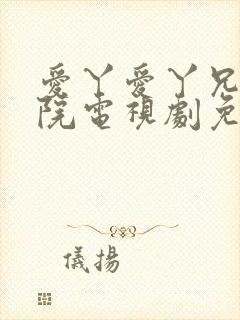 愛丫愛丫兄
院電視劇免
儀揚